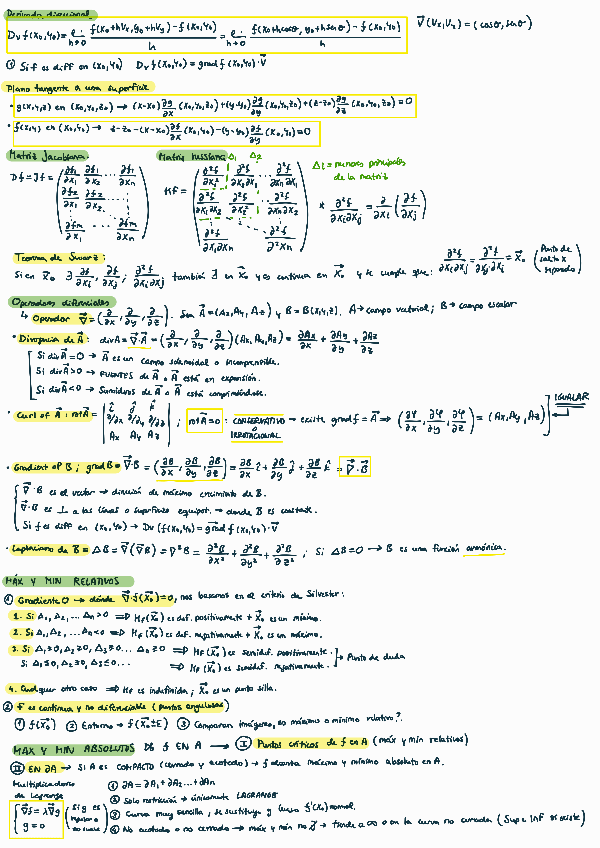 Derivada direccional
D_v f(x₀,y₀) = lim h→0 f(x₀+hVx, y₀+hVy) − f(x₀,y₀) / h = lim h→0 f(x₀+h cosθ, y₀+h senθ) − f(x₀,y₀) / h
V⃗(Vx,Vy) = (cosθ, senθ)
① Si f es diff en (x₀,y₀) D_v f(x₀,y₀) = grad f(x₀,y₀)·V⃗
Plano tangente a una superficie
• g(x,y,z) en (x₀,y₀,z₀) → (x−x₀) ∂g/∂x (x₀,y₀,z₀) + (y−y₀) ∂g/∂y (x₀,y₀,z₀) + (z−z₀) ∂g/∂z (x₀,y₀,z₀) = 0
• f(x,y) en (x₀,y₀) → z−z₀−(x−x₀) ∂f/∂x (x₀,y₀) − (y−y₀) ∂f/∂y (x₀,y₀) = 0
Matriz Jacobiana. Matriz hessiana Δ₁ Δ₂
Δi = menores principales
de la matriz
Df = Jf = ( ∂f₁/∂x₁ ∂f₁/∂x₂ ... ∂f₁/∂xn
∂f₂/∂x₁ ∂f₂/∂x₂ ...
∂fm/∂x₁ ... ∂fm/∂xn )
Hf =
* ∂²f/∂xi∂xj = ∂/∂xi (∂f/∂xj)
Teorema de Swarz:
Si en X⃗₀ ∃ ∂f/∂xi, ∂f/∂xj; ∂²f/∂xi∂xj también ∃ en X⃗₀ y es continua en X⃗₀ y se cumple que: ∂²f/∂xi∂xj = ∂²f/∂xj∂xi = X⃗₀ (Punto de
Operadores diferenciales
↳ Operador ∇⃗ = (∂/∂x, ∂/∂y, ∂/∂z). Sean A⃗ = (Ax, Ay, Az) y B = B(x,y,z). A → campo vectorial; B → campo escalar
• Divergencia de A⃗: div A⃗ = ∇⃗·A⃗ = (∂/∂x, ∂/∂y, ∂/∂z)(Ax, Ay, Az) = ∂Ax/∂x + ∂Ay/∂y + ∂Az/∂z
Si div A⃗ = 0 → A⃗ es un campo solenoidal o incompresible.
Si div A⃗ > 0 → FUENTES de A⃗ o A⃗ está en expansión.
Si div A⃗ < 0 → Sumideros de A⃗ o A⃗ está comprimiéndose.
IGUALAR
• Curl of A⃗; rot A⃗ = | î ĵ k̂ ∂/∂x ∂/∂y ∂/∂z Ax Ay Az | ; rot A⃗ = 0 : CONSERVATIVO → existe grad f = A⃗ ⇒ (∂φ/∂x, ∂φ/∂y, ∂φ/∂z) = (Ax, Ay, Az)
o IRROTACIONAL
• Gradient of B; grad B = ∇⃗·B = (∂B/∂x, ∂B/∂y, ∂B/∂z) = ∂B/∂x î + ∂B/∂y ĵ + ∂B/∂z k̂ = ∇⃗·B⃗
∇⃗·B es el vector → dirección de máximo crecimiento de B.
∇⃗·B es ⊥ a las líneas o superficies equipot. → donde B es constante.
Si f es diff en (x₀,y₀) → Dv (f(x₀,y₀)) = grad f(x₀,y₀)·V⃗
• Laplaciano de B = ΔB = ∇⃗(∇⃗B) = ∇²B = ∂²B/∂x² + ∂²B/∂y² + ∂²B/∂z² ; Si ΔB = 0 → B es una función armónica.
MÁX Y MIN RELATIVOS
① Gradiente 0 → dónde ∇⃗·f(X⃗₀) = 0, nos basamos en el criterio de Silvester:
1. Si Δ₁, Δ₂, ... Δn > 0 ⇒ Hf(X⃗₀) es def. positivamente + X⃗₀ es un mínimo.
2. Si Δ₁, Δ₂, ... Δn < 0 ⇒ Hf(X⃗₀) es def. negativamente + X⃗₀ es un máximo.
3. Si Δ₁ ≥ 0, Δ₂ ≥ 0, Δ₃ ≥ 0 ... Δn ≥ 0 ⇒ Hf(X⃗₀) es semidef. positivamente.
Si Δ₁ ≤ 0, Δ₂ ≥ 0, Δ₃ ≤ 0 ... ⇒ Hf(X⃗₀) es semidef. negativamente. → Punto de duda
4. Cualquier otro caso ⇒ Hf es indefinida; X⃗₀ es un punto silla.
② F es continua y no diferenciable (puntos angulosos)
① f(X⃗₀) ② Entorno → f(X⃗₀±E) ③ Comparar imágenes, es máximo o mínimo relativo?.
MÁX Y MIN ABSOLUTOS DE f EN A → I Puntos críticos de f en A (máx y min relativos)
II EN ∂A → Si A es COMPACTO (cerrado y acotado) → f alcanza máximo y mínimo absoluto en A.
Multiplicadores
de Lagrange
∇⃗f = λ∇⃗g
g = 0
① ∂A = ∂A₁ + ∂A₂ ... + ∂An
② Solo restricción → únicamente LAGRANGE
③ Curva muy sencilla, se sustituye y luego f'(X⃗₀) normal.
④ No acotado o no cerrado → máx y min no ∃ → tiende a ∞ o en la curva no cerrada (Sup e Inf si existe)